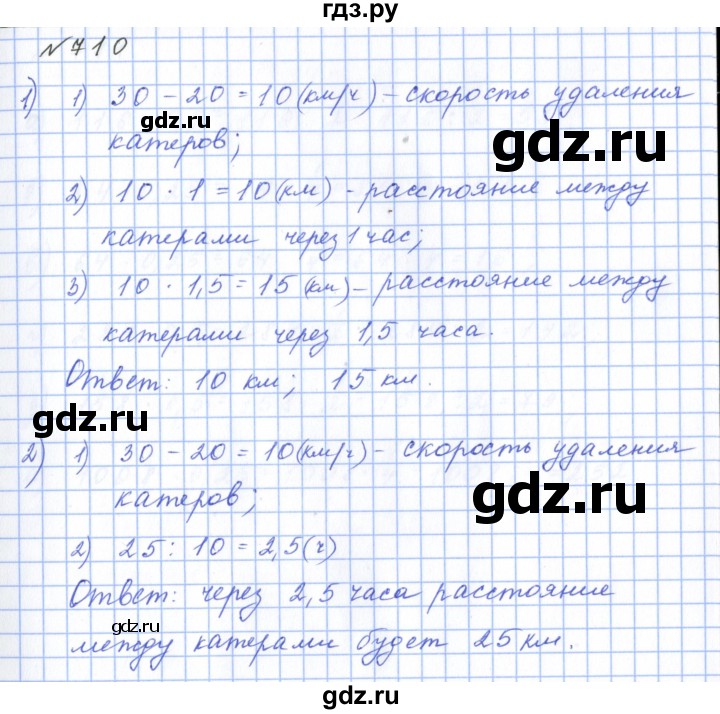 гдз.ру
№710
1) 1) 30 - 20 = 10 (км/ч) - скорость удаления
gdz.ru
gdz.ru
катеров;
2) 10 · 1 = 10 (км) - расстояние между
катерами через 1 час;
3) 10 · 1,5 = 15 (км) - расстояние между
катерами через 1,5 часа.
Ответ: 10 км; 15 км.
gdz.ru
2) 1) 30 - 20 = 10 (км/ч) - скорость удаления
gdz.ru
катеров;
2) 25 : 10 = 2,5 (ч)
Ответ: через 2,5 часа расстояние
gdz.ru
между катерами будет 25 км.
gdz.ru